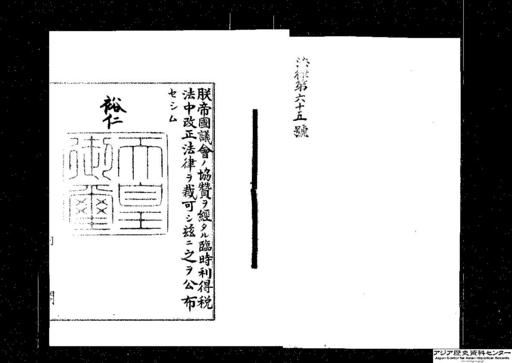 法律第六十五號
朕帝國議會ノ協贊ヲ經タル臨時利得税
法中改正法律ヲ裁可シ茲ニ之ヲ公布
セシム
裕仁
天皇
御璽
アジア歴史資料センター
Japan Center for Asian Historical Records